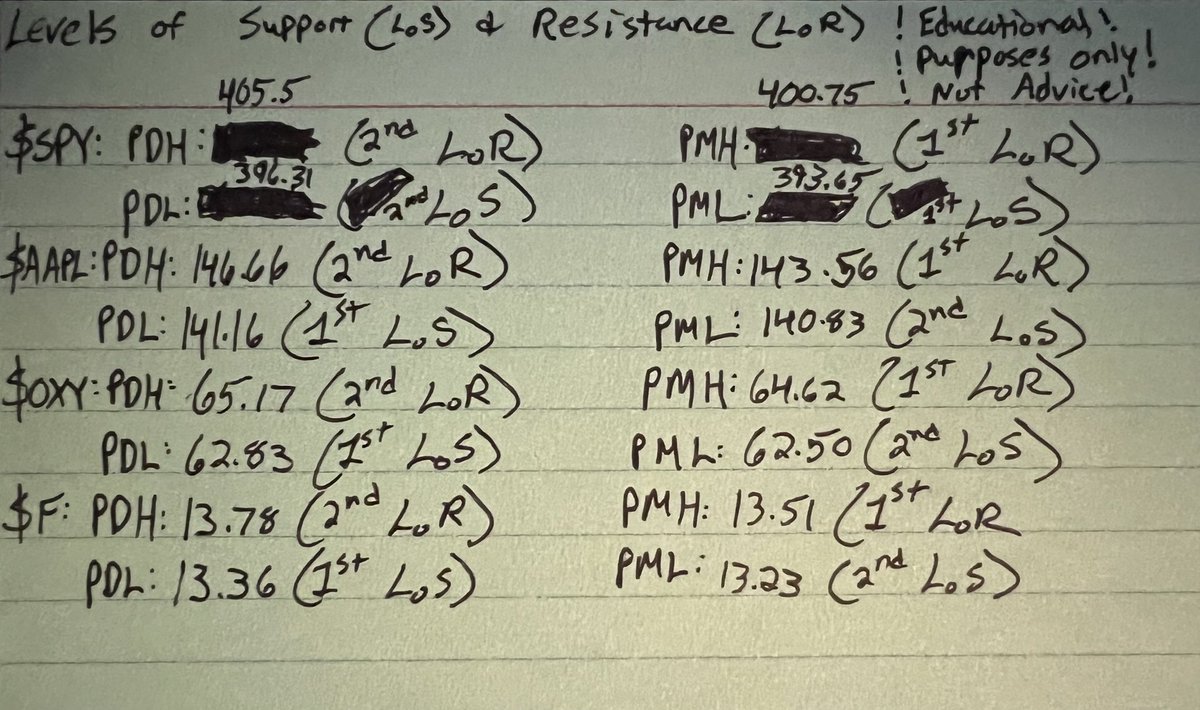 Levels of Support (LoS) & Resistance (LoR) ! Educational!
! Purposes only!
! Not Advice!
405.5 400.75
$SPY: PDH: (2nd LoR) PMH: (1st LoR)
396.31 393.65
PDL: (2nd LoS) PML: (1st LoS)
$AAPL: PDH: 146.66 (2nd LoR) PMH: 143.56 (1st LoR)
PDL: 141.16 (1st LoS) PML: 140.83 (2nd LoS)
$OXY: PDH: 65.17 (2nd LoR) PMH: 64.62 (1st LoR)
PDL: 62.83 (1st LoS) PML: 62.50 (2nd LoS)
$F: PDH: 13.78 (2nd LoR) PMH: 13.51 (1st LoR
PDL: 13.36 (1st LoS) PML: 13.23 (2nd LoS)